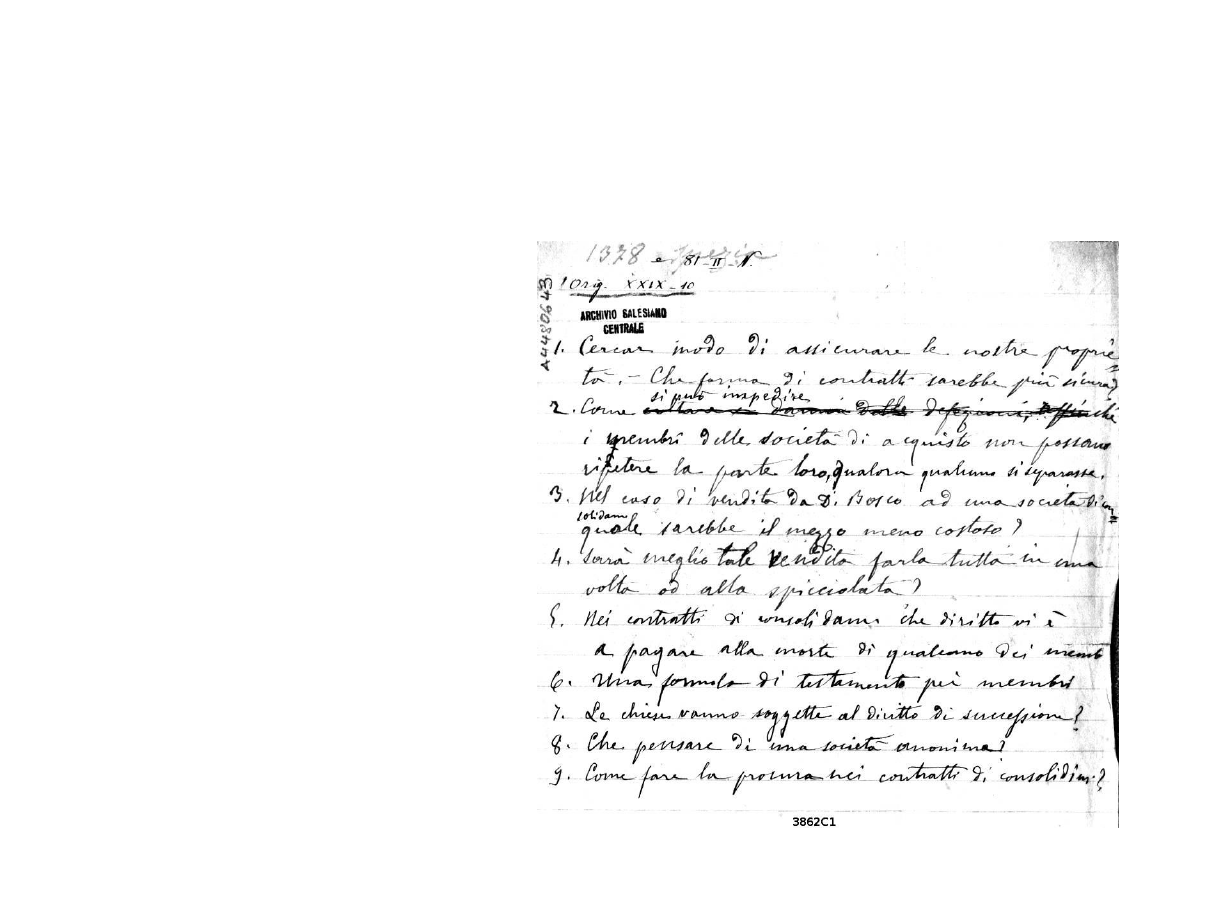 1378 Spezia
e 81-II-N.
Orig. XXIX-10
A4480643
ARCHIVIO SALESIANO
CENTRALE
1. Cercar modo di assicurare le nostre proprie=
tà. – Che forma di contratti sarebbe più sicura?
si può impedire
2. Come defezioni, affinchè
i membri delle società di acquisto non possano
ripetere la parte loro, qualora qualcuno si separasse.
3. Nel caso di vendita da D. Bosco ad una società di con=
solidam
quale sarebbe il mezzo meno costoso?
4. Sarà meglio tale vendita farla tutta in una
volta od alla spicciolata?
5. Nei contratti di consolidam. che diritto vi è
a pagare alla morte di qualcuno dei memb
6. Una formola di testamento pei membri
7. Le chiese vanno soggette al diritto di successione?
8. Che pensare di una società anonima?
9. Come fare la procura nei contratti di consolidam.?
3862C1